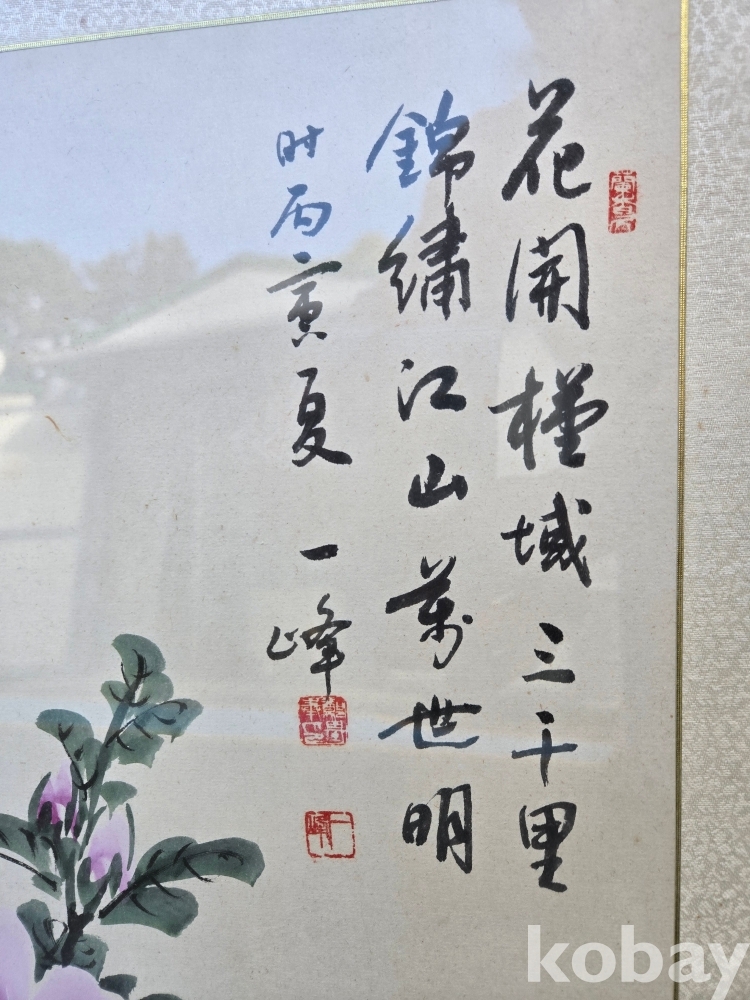 花開槿域三千里
錦繡江山萬世明
时丙寅夏 一峰
kobay